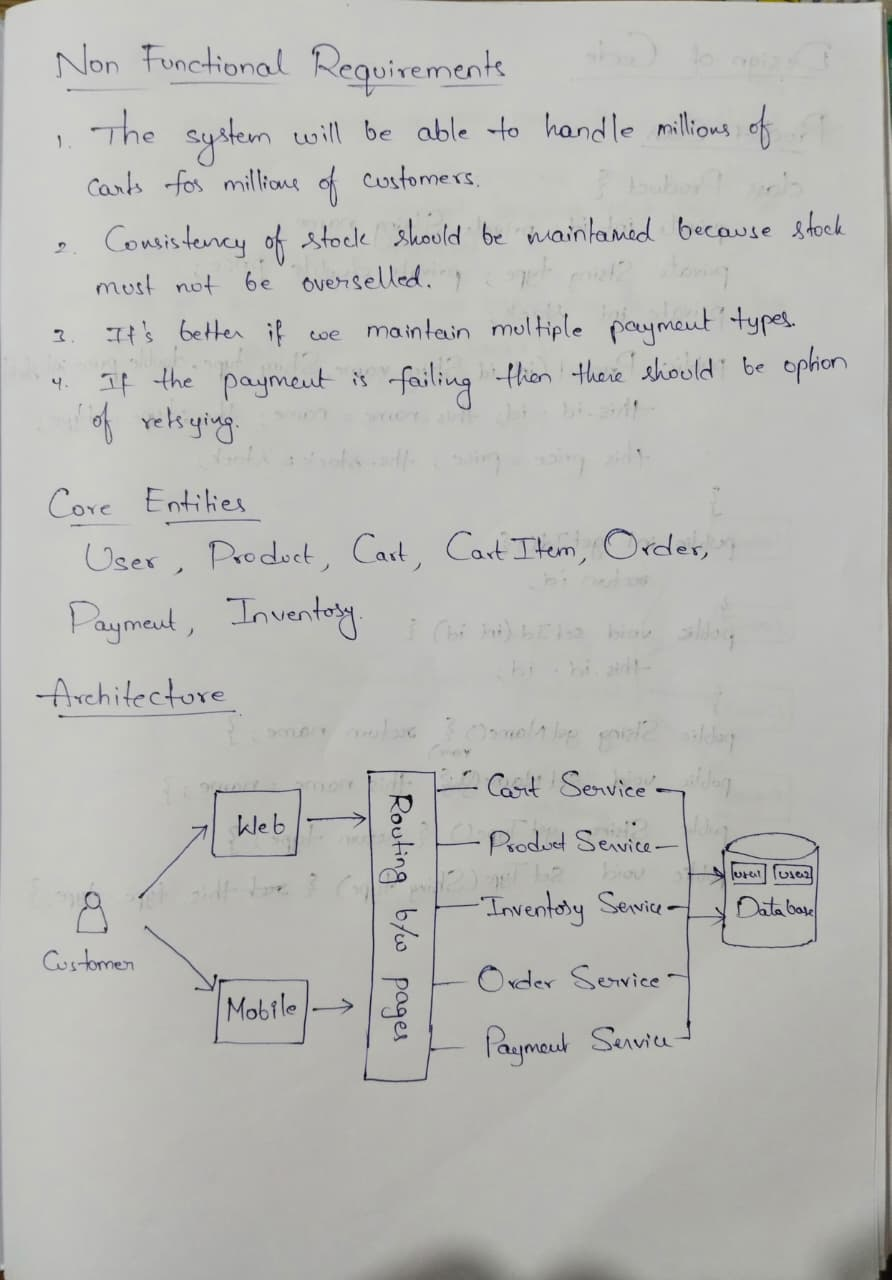 Non Functional Requirements
1. The system will be able to handle millions of
carts for millions of customers.
2. Consistency of stock should be maintained because stock
must not be overselled.
3. It's better if we maintain multiple payment types.
4. If the payment is failing then there should be option
of retrying.
Core Entities
User, Product, Cart, Cart Item, Order,
Payment, Inventory.
Architecture
Customer
Web
Mobile
Routing b/w pages
Cart Service
Product Service
Inventory Service
Order Service
Payment Service
user1 user2
Database